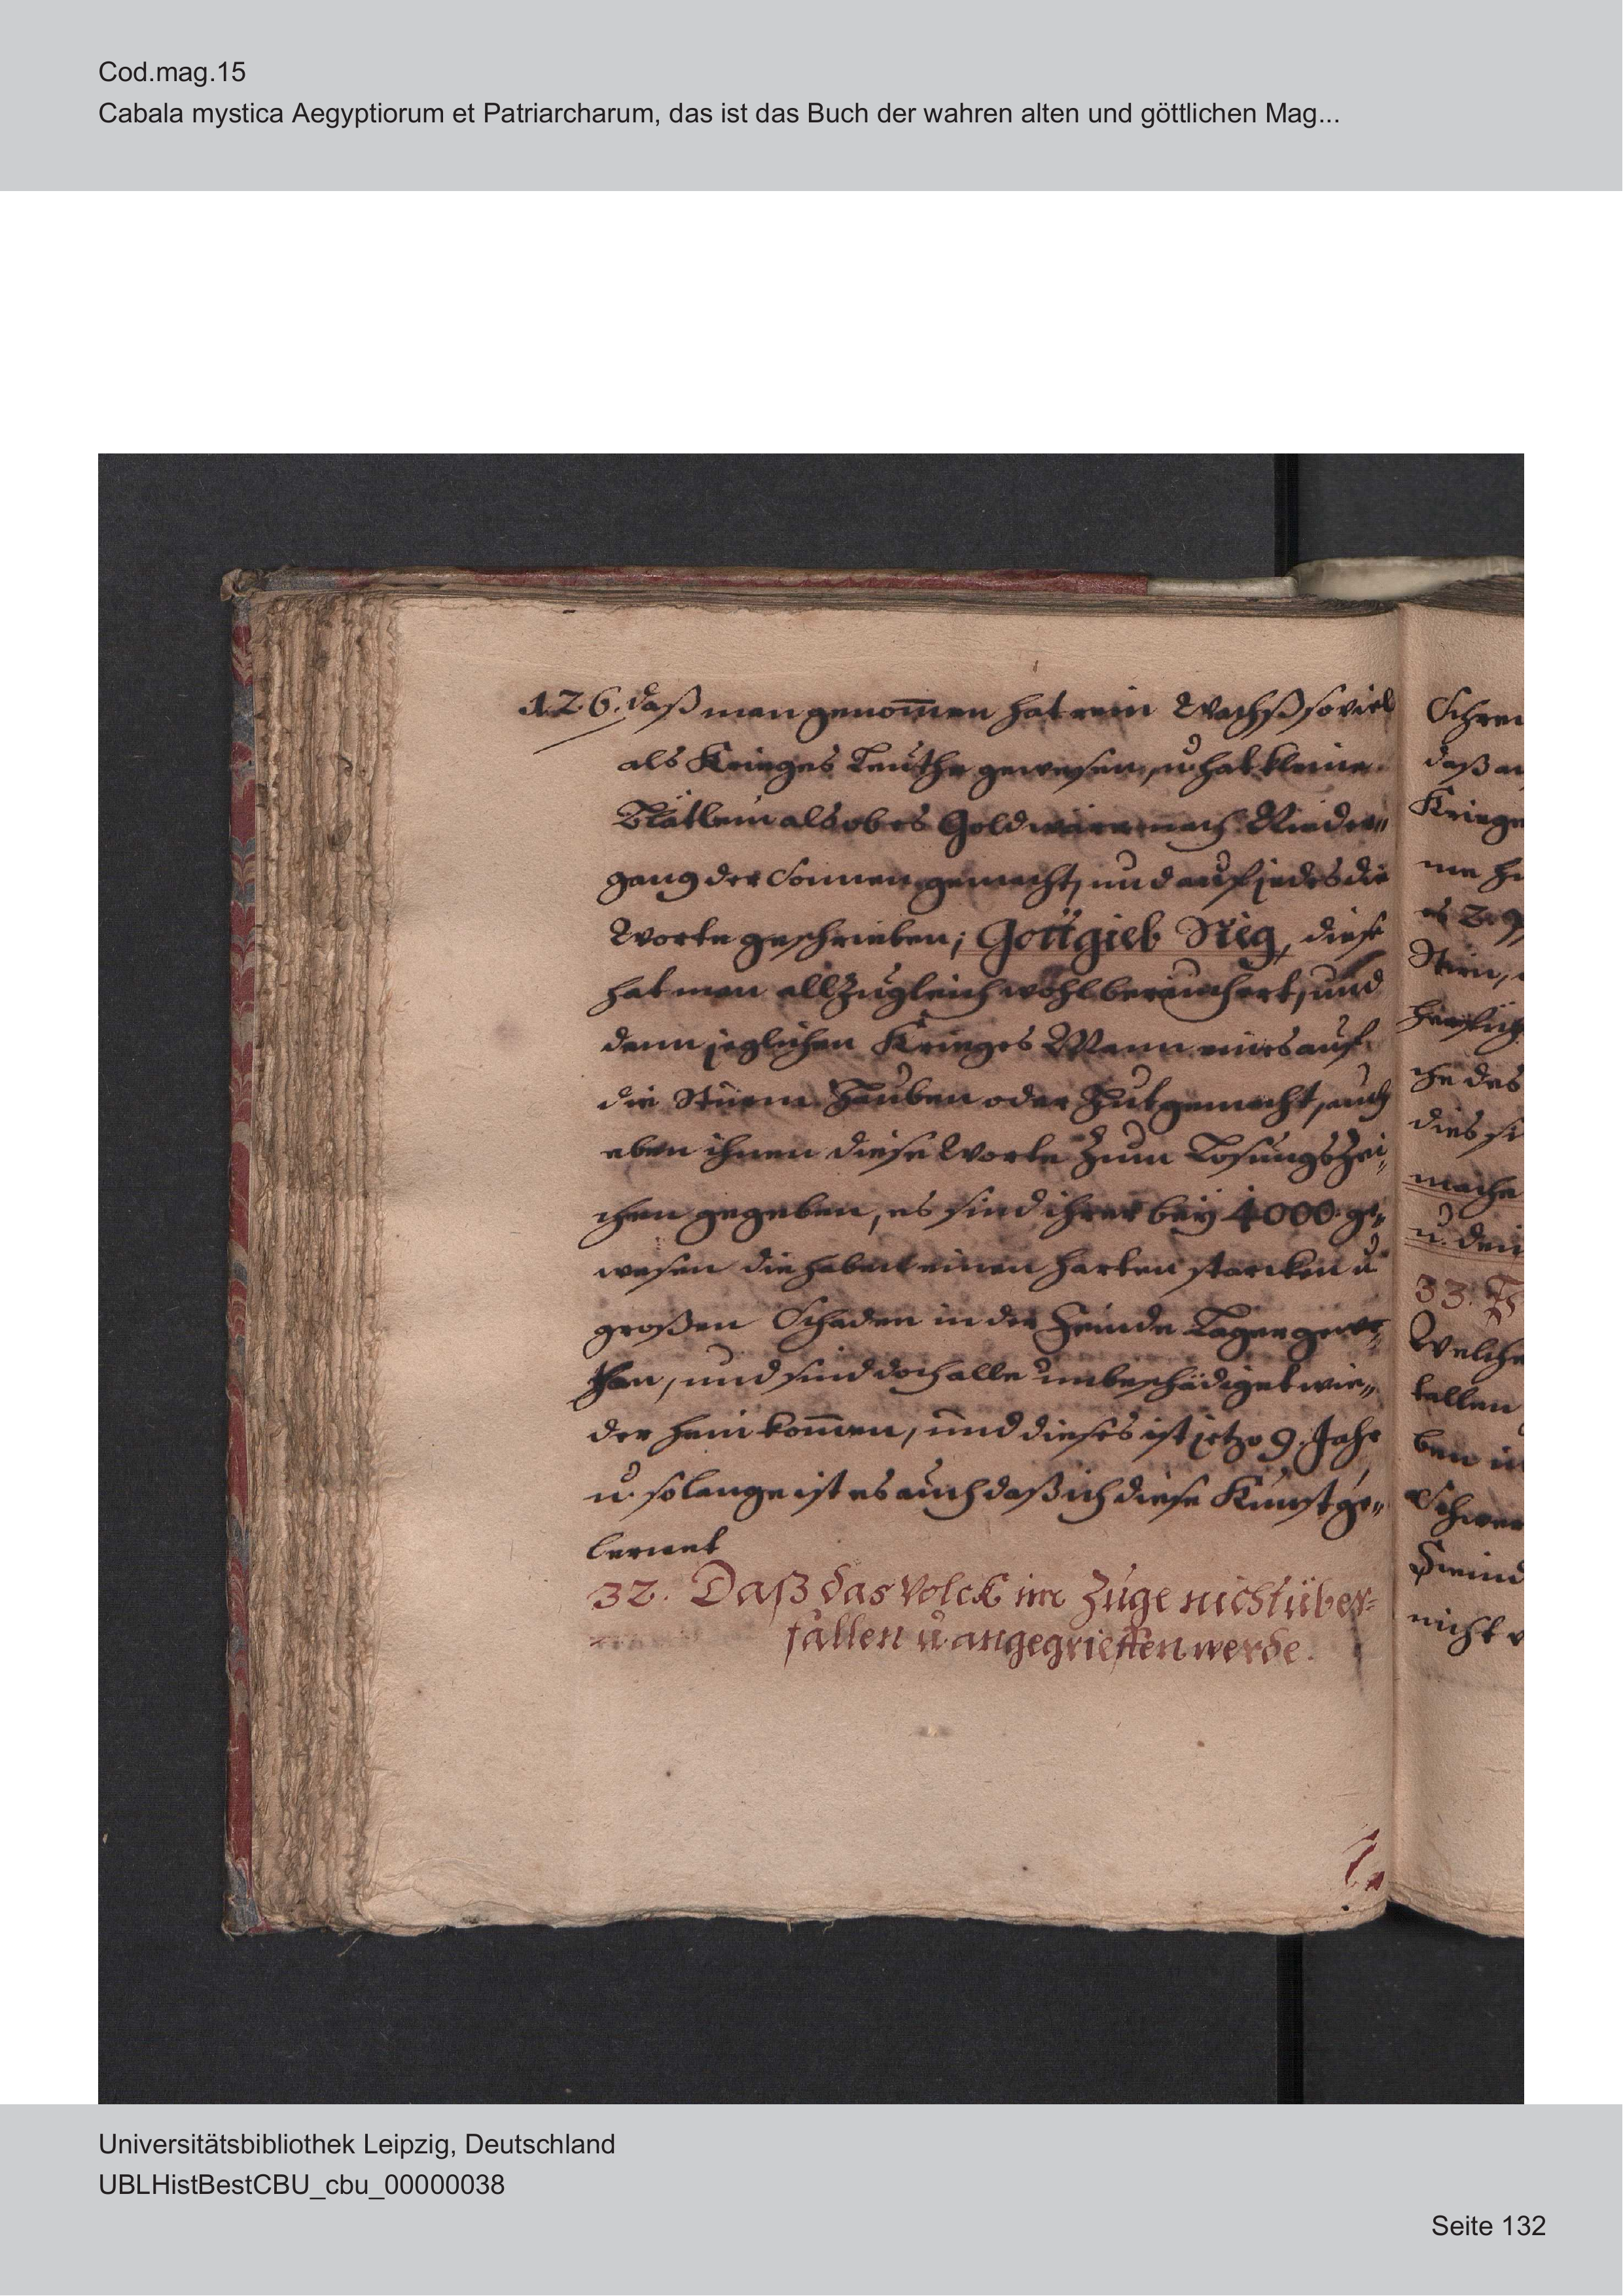 Cod.mag.15
Cabala mystica Aegyptiorum et Patriarcharum, das ist das Buch der wahren alten und göttlichen Mag...
126. daß man genom̅en hat rein Wachß soviel
als Krieges Leuthe gewesen, u. hat kleine
Blätlein als ob es Gold wäre nach Nieder„
gang der Sonnen gemacht, und auf jedes die
Worte geschrieben; Gott gieb Sieg, diese
hat man all zugleich wohl beräuchert, und
dann jeglichen Krieges Mann eines auf
die Sturm Hauben oder Hut gemacht, auch
eben ihnen diese Worte zum Losungszei„
chen gegeben, es sind ihrer beÿ 4000. ge„
wesen die haben einen harten starcken u.
großen Schaden in der Feinde Lager
than, und sind doch alle unbeschädiget wie„
der heim kom̅en, und dieses ist jetzo 9. Jahr
u. solange ist es auch daß ich diese Kunst ge„
lernet
32. Daß das Volck im Zuge nicht über=
fallen u. angegrieffen werde.
Schrei
daß
Kriege
me
es
Stirn,
che des
dies
mache
u. den
33.
Welche
tallen
ben
Schwer
Feind
nicht
Universitätsbibliothek Leipzig, Deutschland
UBLHistBestCBU_cbu_00000038
Seite 132